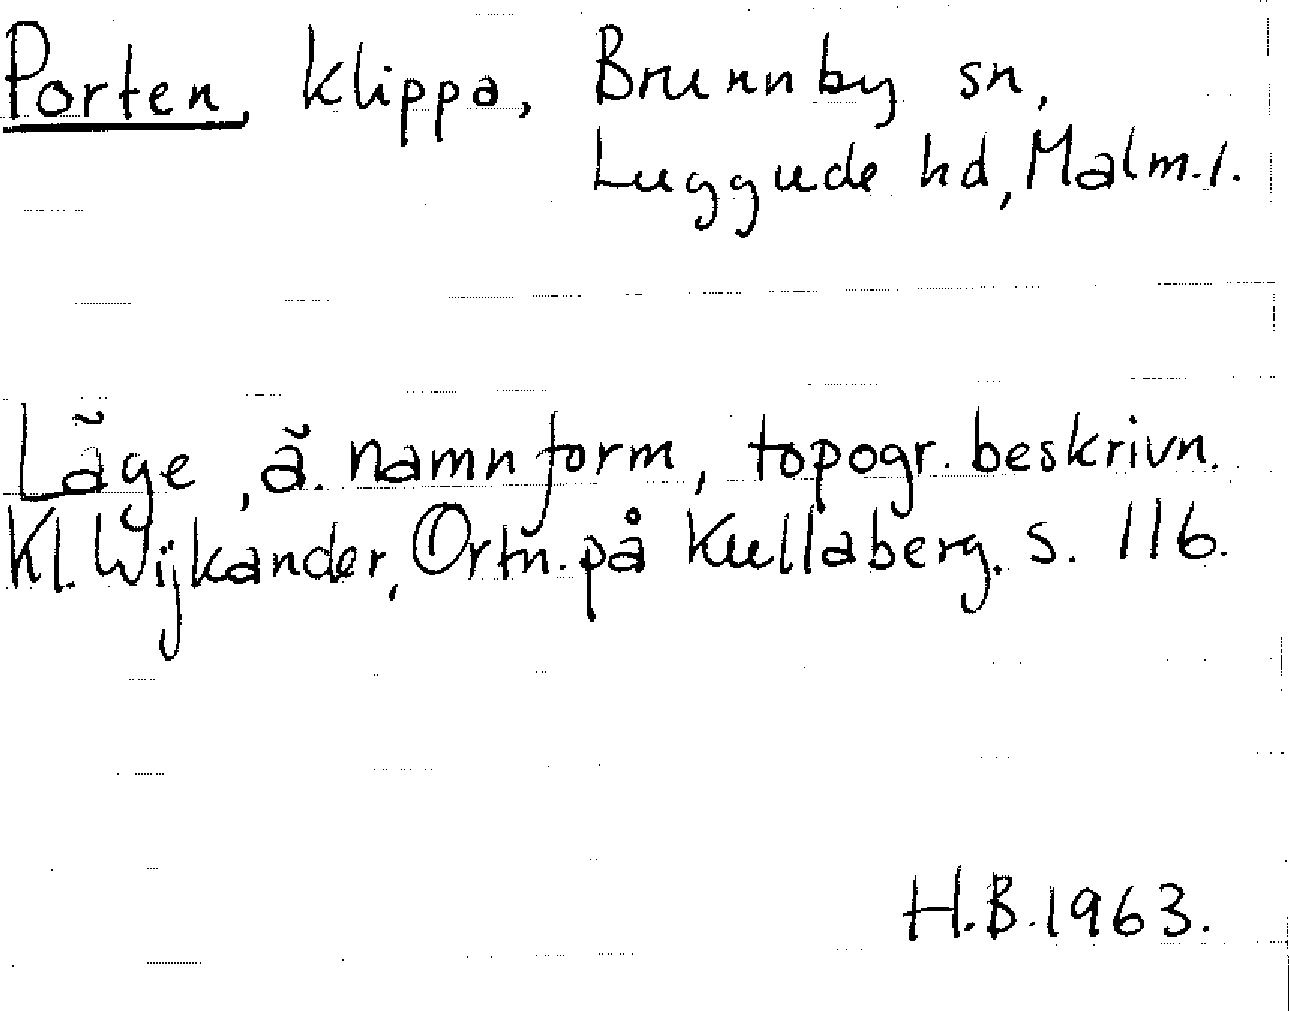 Porten, klippa, Brunnby sn,
Luggude hd, Malm. l.
Läge, ä. namnform, topogr. beskrivn.
Kl. Wijkander, Ortn. på Kullaberg. s. 116.
H.B. 1963.